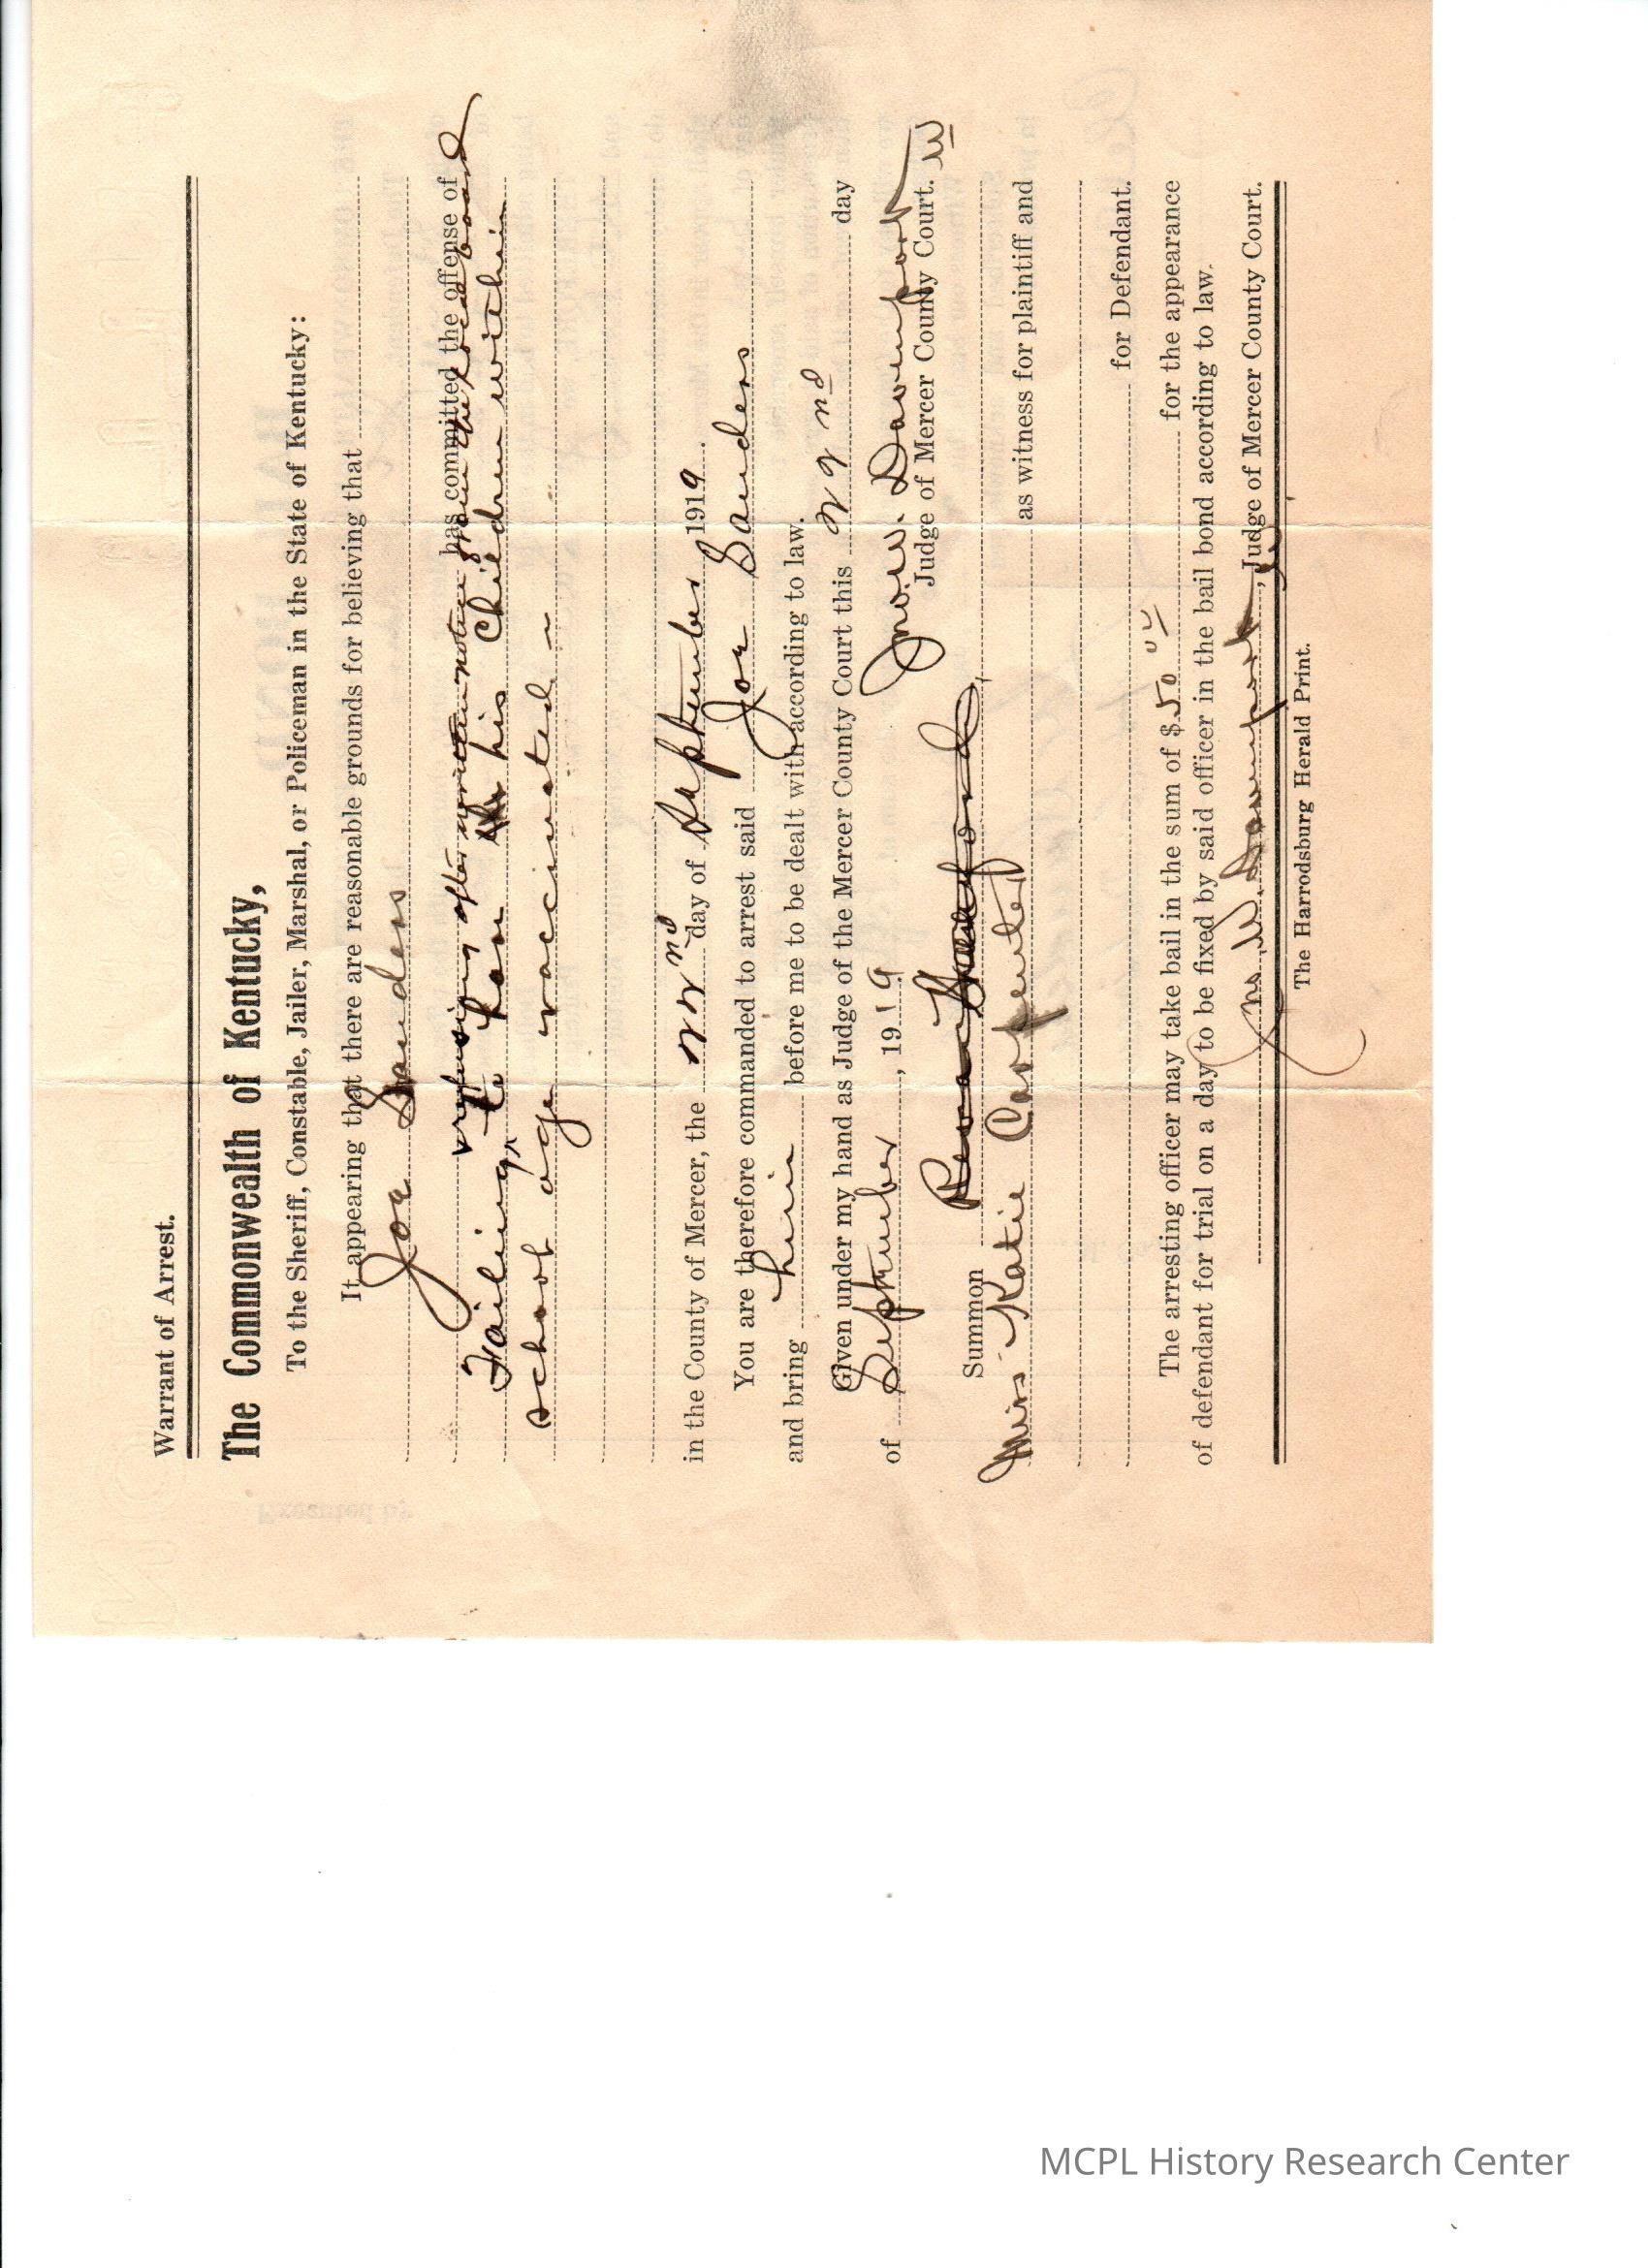 Warrant of Arrest.
The Commonwealth of Kentucky,
To the Sheriff, Constable, Jailer, Marshal, or Policeman in the State of Kentucky:
It appearing that there are reasonable grounds for believing that
Joe Sanders
has committed the offense of
refusing after written notice from the board
Failing to have his Children within
school age vaccinated
in the County of Mercer, the 22nd day of September 1919.
You are therefore commanded to arrest said Joe Sanders
and bring him before me to be dealt with according to law.
Given under my hand as Judge of the Mercer County Court this 22nd day
of September, 1919 Jno. W. Davenport
Judge of Mercer County Court.
Summon
Miss Katie Carpenter as witness for plaintiff and
for Defendant.
The arresting officer may take bail in the sum of $50 00 for the appearance
of defendant for trial on a day to be fixed by said officer in the bail bond according to law.
Jno. W. Davenport, Judge of Mercer County Court.
The Harrodsburg Herald Print.
Executed by
MCPL History Research Center